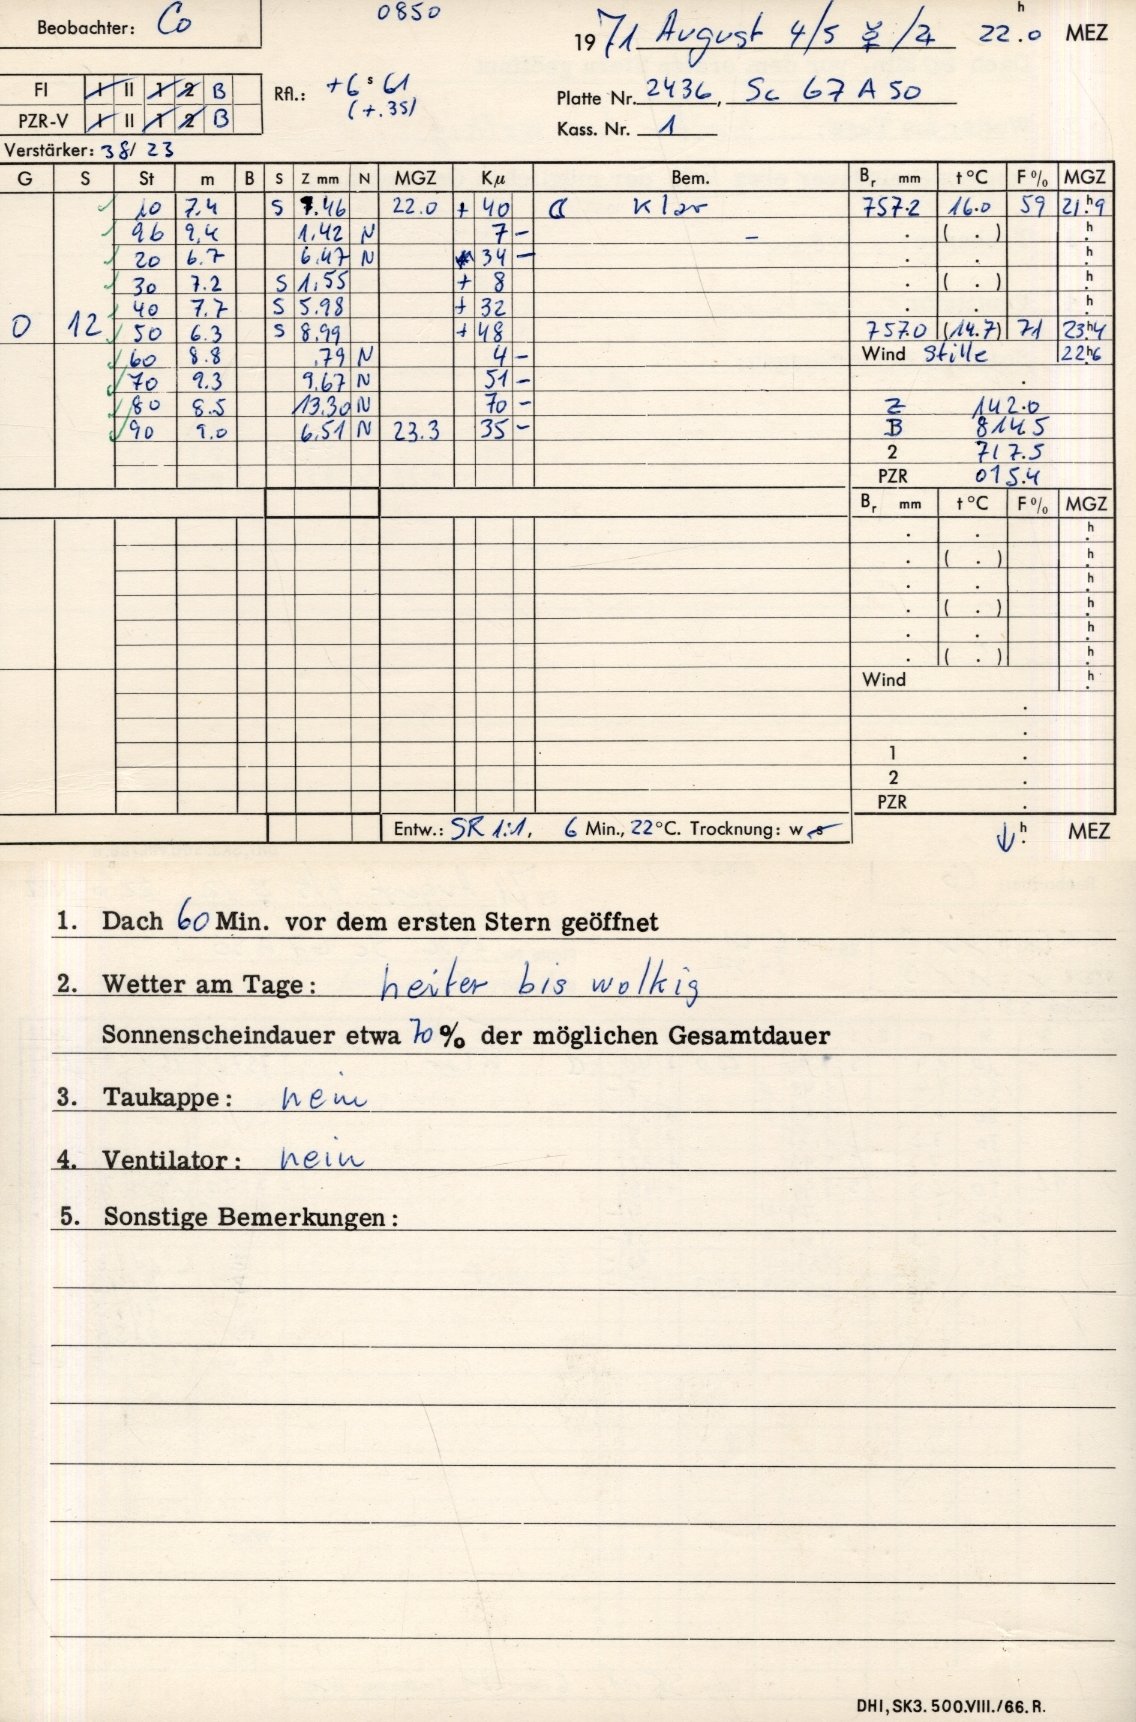 Beobachter: Co
0850
1971 August 4/5 ☿/♃ 22.0 h MEZ
FI I II 1 2 B
Rfl.: +6 s 61
(+.35)
Platte Nr. 2436, Sc 67 A 50
PZR-V I II 1 2 B
Kass. Nr. 1
Verstärker: 38/23
G S St m B S Z mm N MGZ Kμ Bem. Br mm t°C F% MGZ
10 7.4 S 7.46 22.0 + 40 ☾ Klar 757.2 16.0 59 21.h9
96 9,4 1.42 N 7 – – . ( . ) h
20 6.7 6.47 N 34 – . . h
30 7.2 S 1.55 + 8 . ( . ) h
40 7.7 S 5.98 + 32 . . h
0 12 50 6.3 S 8.99 + 48 757.0 (14.7) 71 23h4
60 8.8 .79 N 4 – Wind Stille 22h6
70 9.3 9.67 N 51 – .
80 8.5 13.30 N 70 – Z 142.0
90 9.0 6.51 N 23.3 35 – B 814.5
2 717.5
PZR 015.4
Br mm t°C F% MGZ
. . h
. ( . ) h
. . h
. ( . ) h
. . h
. ( . ) h
Wind h
.
.
1 .
2 .
PZR .
Entw.: SR 1:1, 6 Min., 22°C. Trocknung: w s
↓ h MEZ
1. Dach 60 Min. vor dem ersten Stern geöffnet
2. Wetter am Tage: heiter bis wolkig
Sonnenscheindauer etwa 70% der möglichen Gesamtdauer
3. Taukappe: nein
4. Ventilator: nein
5. Sonstige Bemerkungen:
DHI, SK3. 500.VIII./66. R.